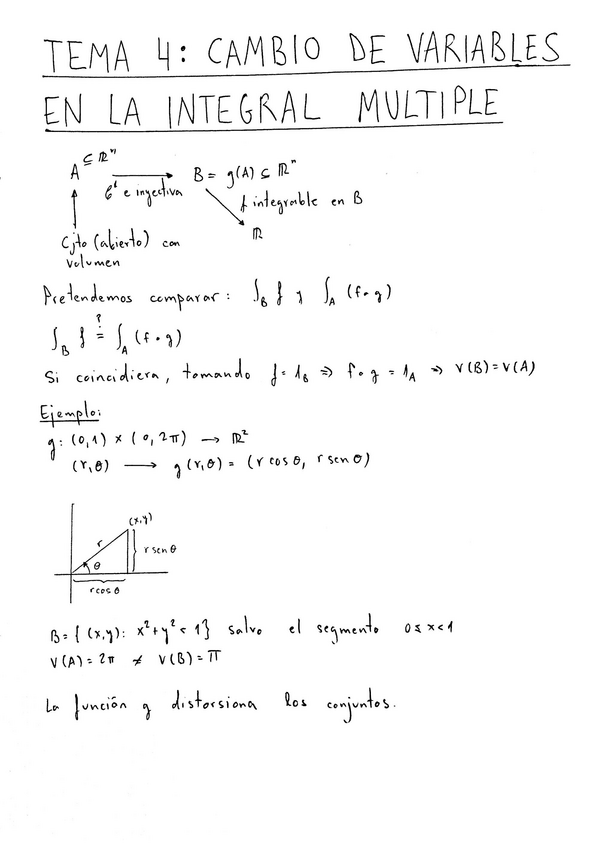 TEMA 4: CAMBIO DE VARIABLES
EN LA INTEGRAL MULTIPLE
A ⊆ ℝⁿ → B = g(A) ⊆ ℝⁿ
C¹ e inyectiva
f integrable en B
ℝ
Cjto (abierto) con
volumen
Pretendemos comparar: ∫_B f y ∫_A (f∘g)
∫_B f =? ∫_A (f∘g)
Si coincidiera, tomando f = 1_B ⇒ f∘g = 1_A ⇒ V(B)=V(A)
Ejemplo:
g: (0,1) × (0,2π) → ℝ²
(r,θ) → g(r,θ) = (r cos θ, r sen θ)
(x,y)
r
r sen θ
θ
r cos θ
B = { (x,y): x²+y² < 1} salvo el segmento 0≤x<1
V(A) = 2π ≠ V(B) = π
La función g distorsiona los conjuntos.